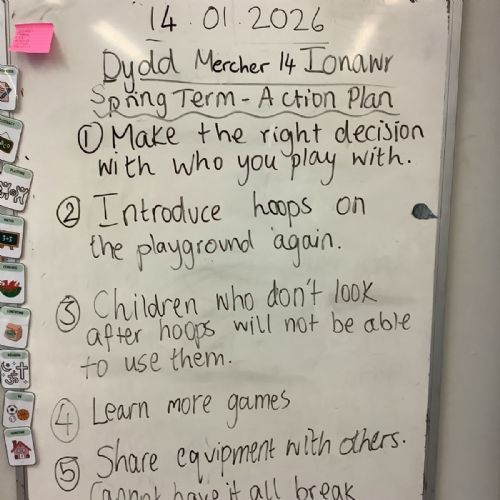 14.01.2026
Dydd Mercher 14 Ionawr
Spring Term - Action Plan
① Make the right decision
with who you play with.
② Introduce hoops on
the playground again.
③ Children who don't look
after hoops will not be able
to use them.
④ Learn more games
⑤ Share equipment with others.
Cannot have it all break